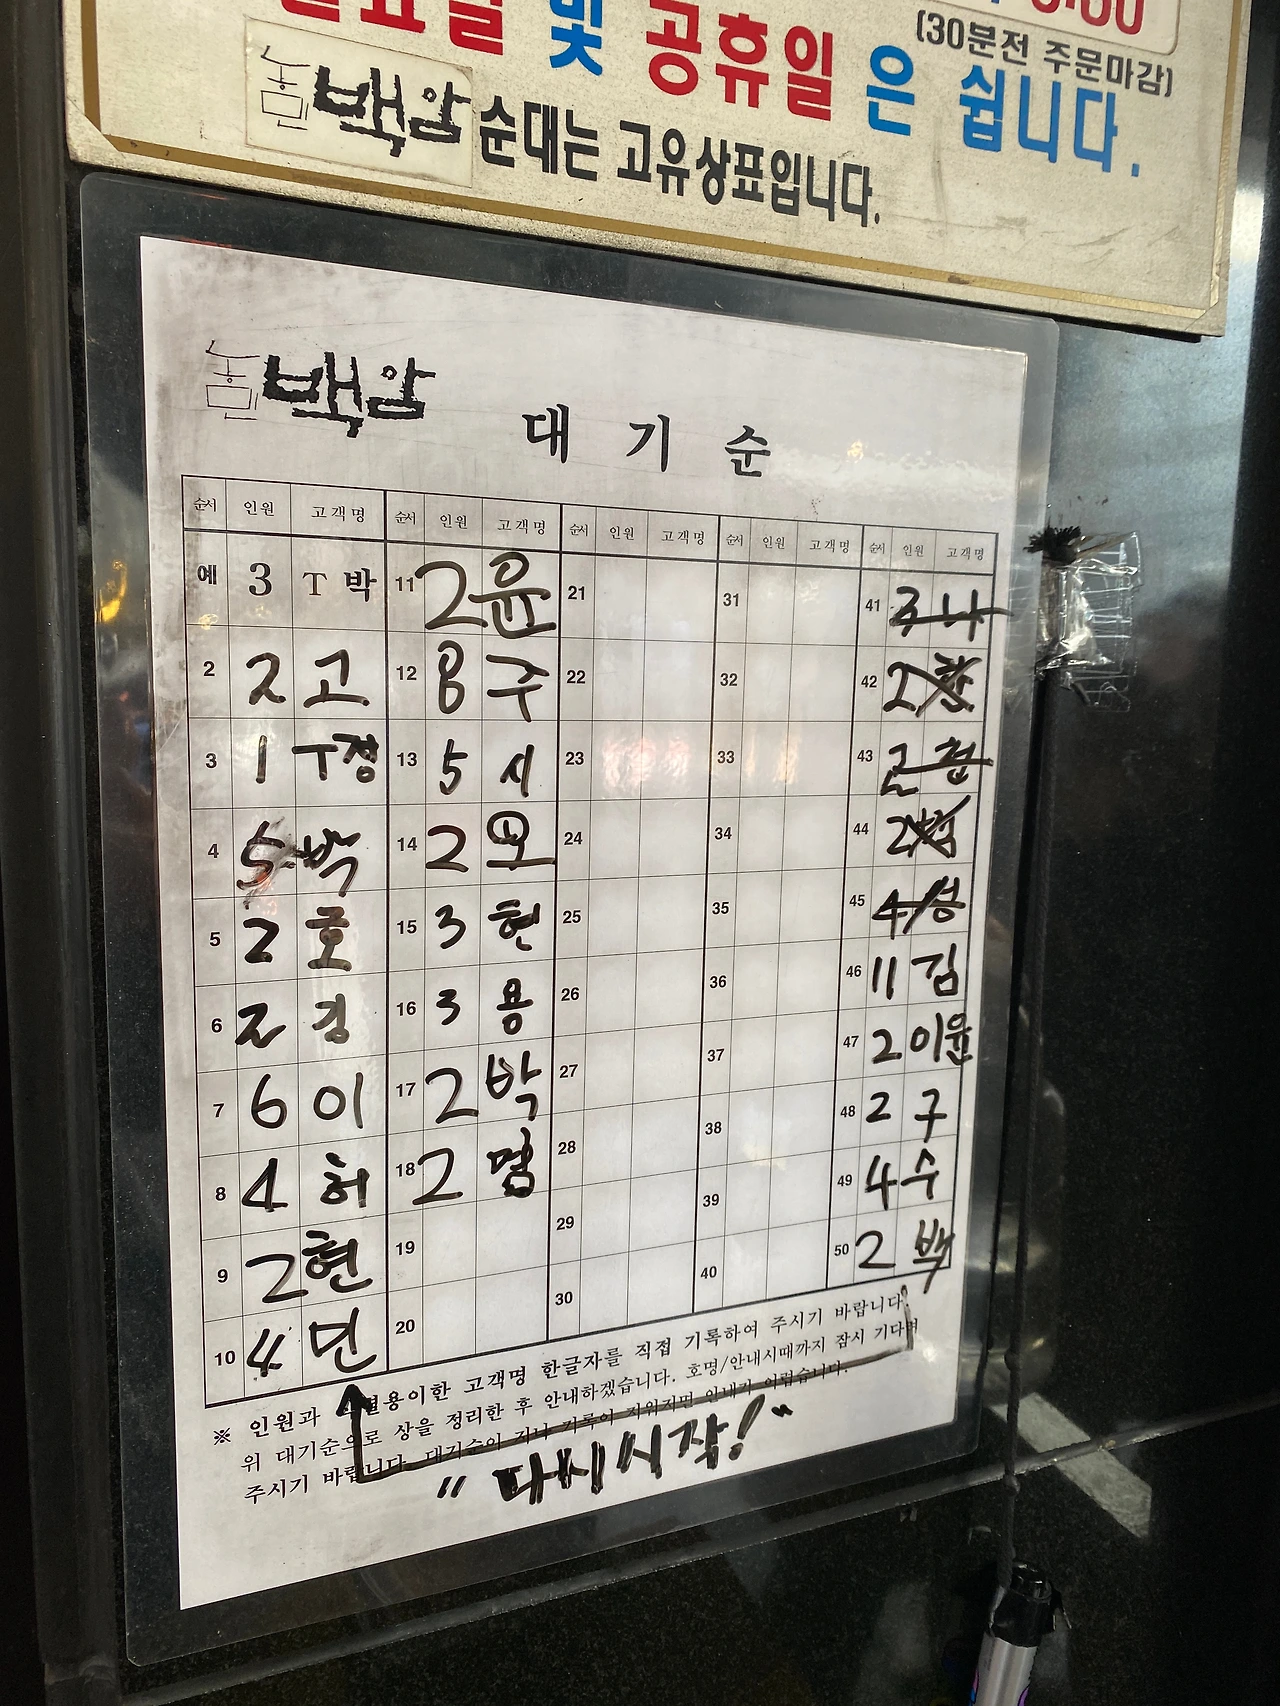 일 및 공휴일 은 쉽니다.
(30분전 주문마감)
농민백암 순대는 고유상표입니다.
농민백암
대 기 순
순서 인원 고객명 순서 인원 고객명 순서 인원 고객명 순서 인원 고객명 순서 인원 고객명
예 3 T 박 11 2 윤 21 31 41 3 나
2 2 고 12 8 주 22 32 42 2
3 1 T정 13 5 시 23 33 43 2
4 5 박 14 2 모 24 34 44 2
5 2 호 15 3 현 25 35 45 4 성
6 2 경 16 3 용 26 36 46 11 김
7 6 이 17 2 박 27 37 47 2 이윤
8 4 허 18 2 명 28 38 48 2 구
9 2 현 19 29 39 49 4 수
10 4 민 20 30 40 50 2 백
※ 인원과 식별용이한 고객명 한글자를 직접 기록하여 주시기 바랍니다.
위 대기순으로 상을 정리한 후 안내하겠습니다. 호명/안내시때까지 잠시 기다려
주시기 바랍니다. 대기순이 지나 기록이 지워지면 안내가 어렵습니다.
"다시시작!"